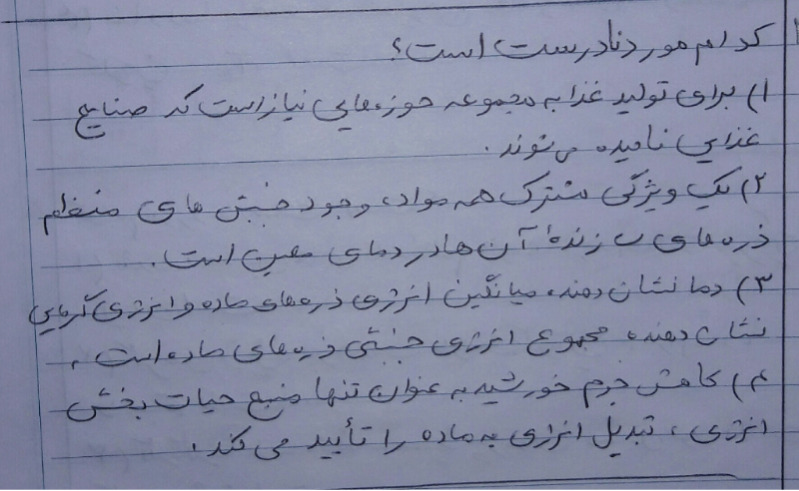 کدام مورد نادرست است؟
۱) برای تولید غذا به مجموعه حوزه‌هایی نیاز است که صنایع
غذایی نامیده می‌شوند.
۲) یک ویژگی مشترک همه مواد، وجود جنبش های منظم
ذره های سازندهٔ آن ها در دمای معین است.
۳) دما نشان دهنده میانگین انرژی ذره‌های ماده و انرژی گرمایی
نشان دهنده مجموع انرژی جنبشی ذره های ماده است.
۴) کاهش جرم خورشید به عنوان تنها منبع حیات بخش
انرژی، تبدیل انرژی به ماده را تأیید می کند.